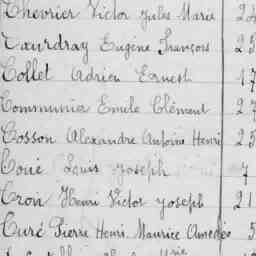 Chevrier Victor Jules Marie 24
Courdray Eugène François 25
Collet Adrien Ernest 17
Communier Emile Clément 27
Cosson Alexandre Antoine Henri 25
Coué Louis Joseph 7
Cron Henri Victor Joseph 21
Curé Pierre Henri Maurice Amedée 5